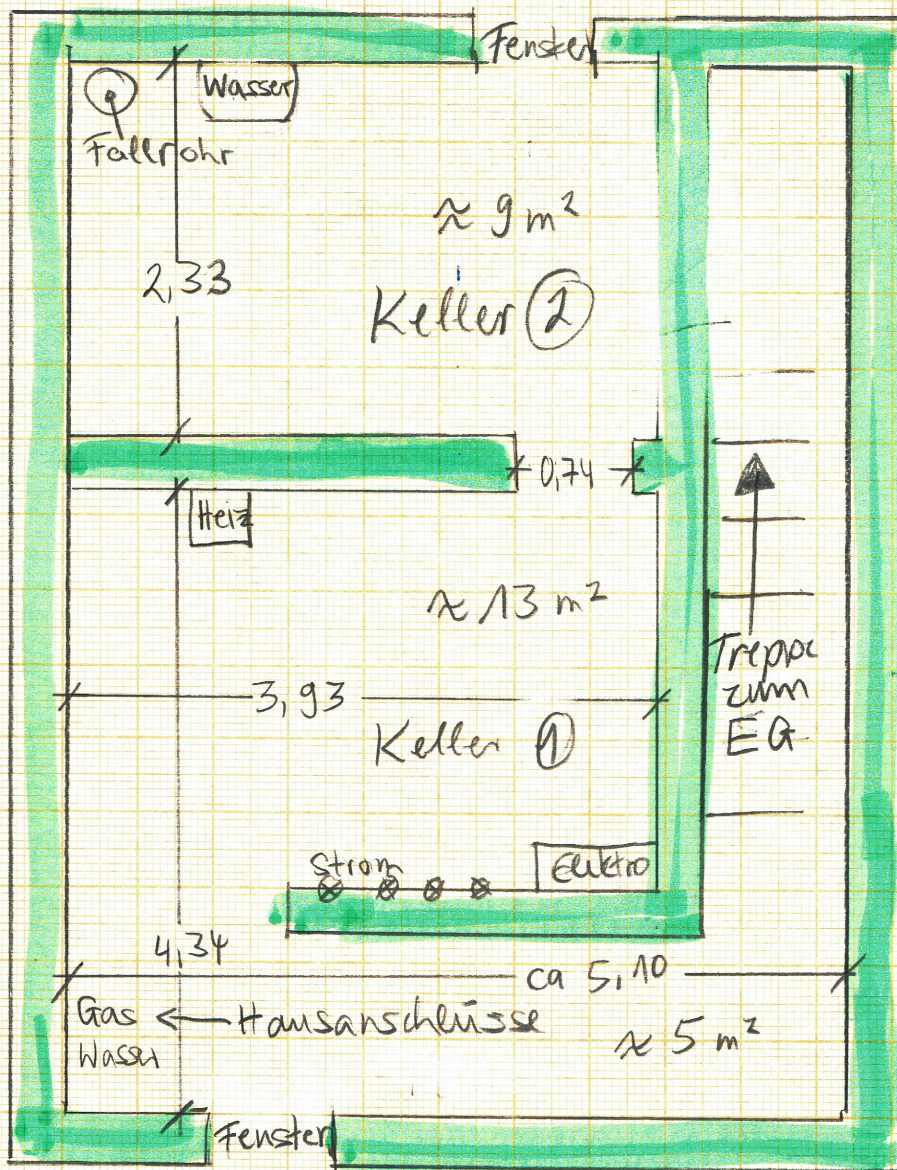 Fenster
Wasser
Fallrohr
≈ 9 m²
2,33
Keller ②
0,74
Heiz
≈ 13 m²
Treppe
zum
EG
3,93
Keller ①
Strom
Elektro
4,34
ca 5,10
Gas ← Hausanschlüsse
Wasser
≈ 5 m²
Fenster